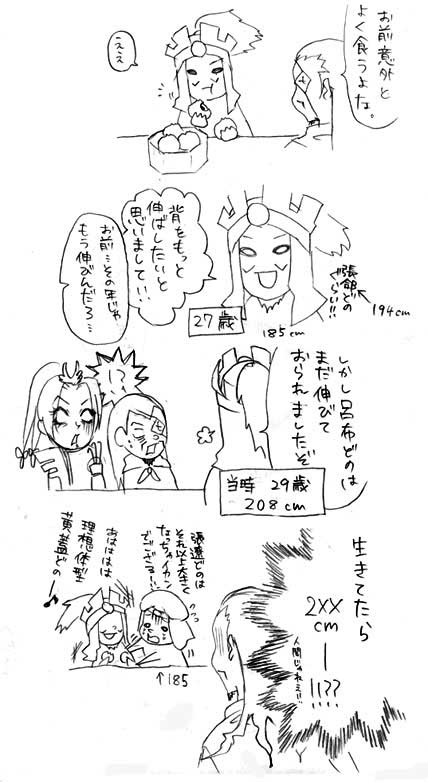 お前意外と
よく食うよな。
ええ
背をもっと
伸ばしたいと
思いまして!!
お前…その年じゃ
もう伸びんだろ…
張郃どの
ぐらい!!
194cm
27歳
185cm
しかし呂布どのは
まだ伸びて
おられましたぞ
!?
当時 29歳
208cm
生きてたら
2XX
cm
ー
!!??
人間じゃねェ!!
張遼どのは
それ以上大きく
なっちゃイカン
でござる!!
あはははは
理想体型
黄蓋どの♪
↑185